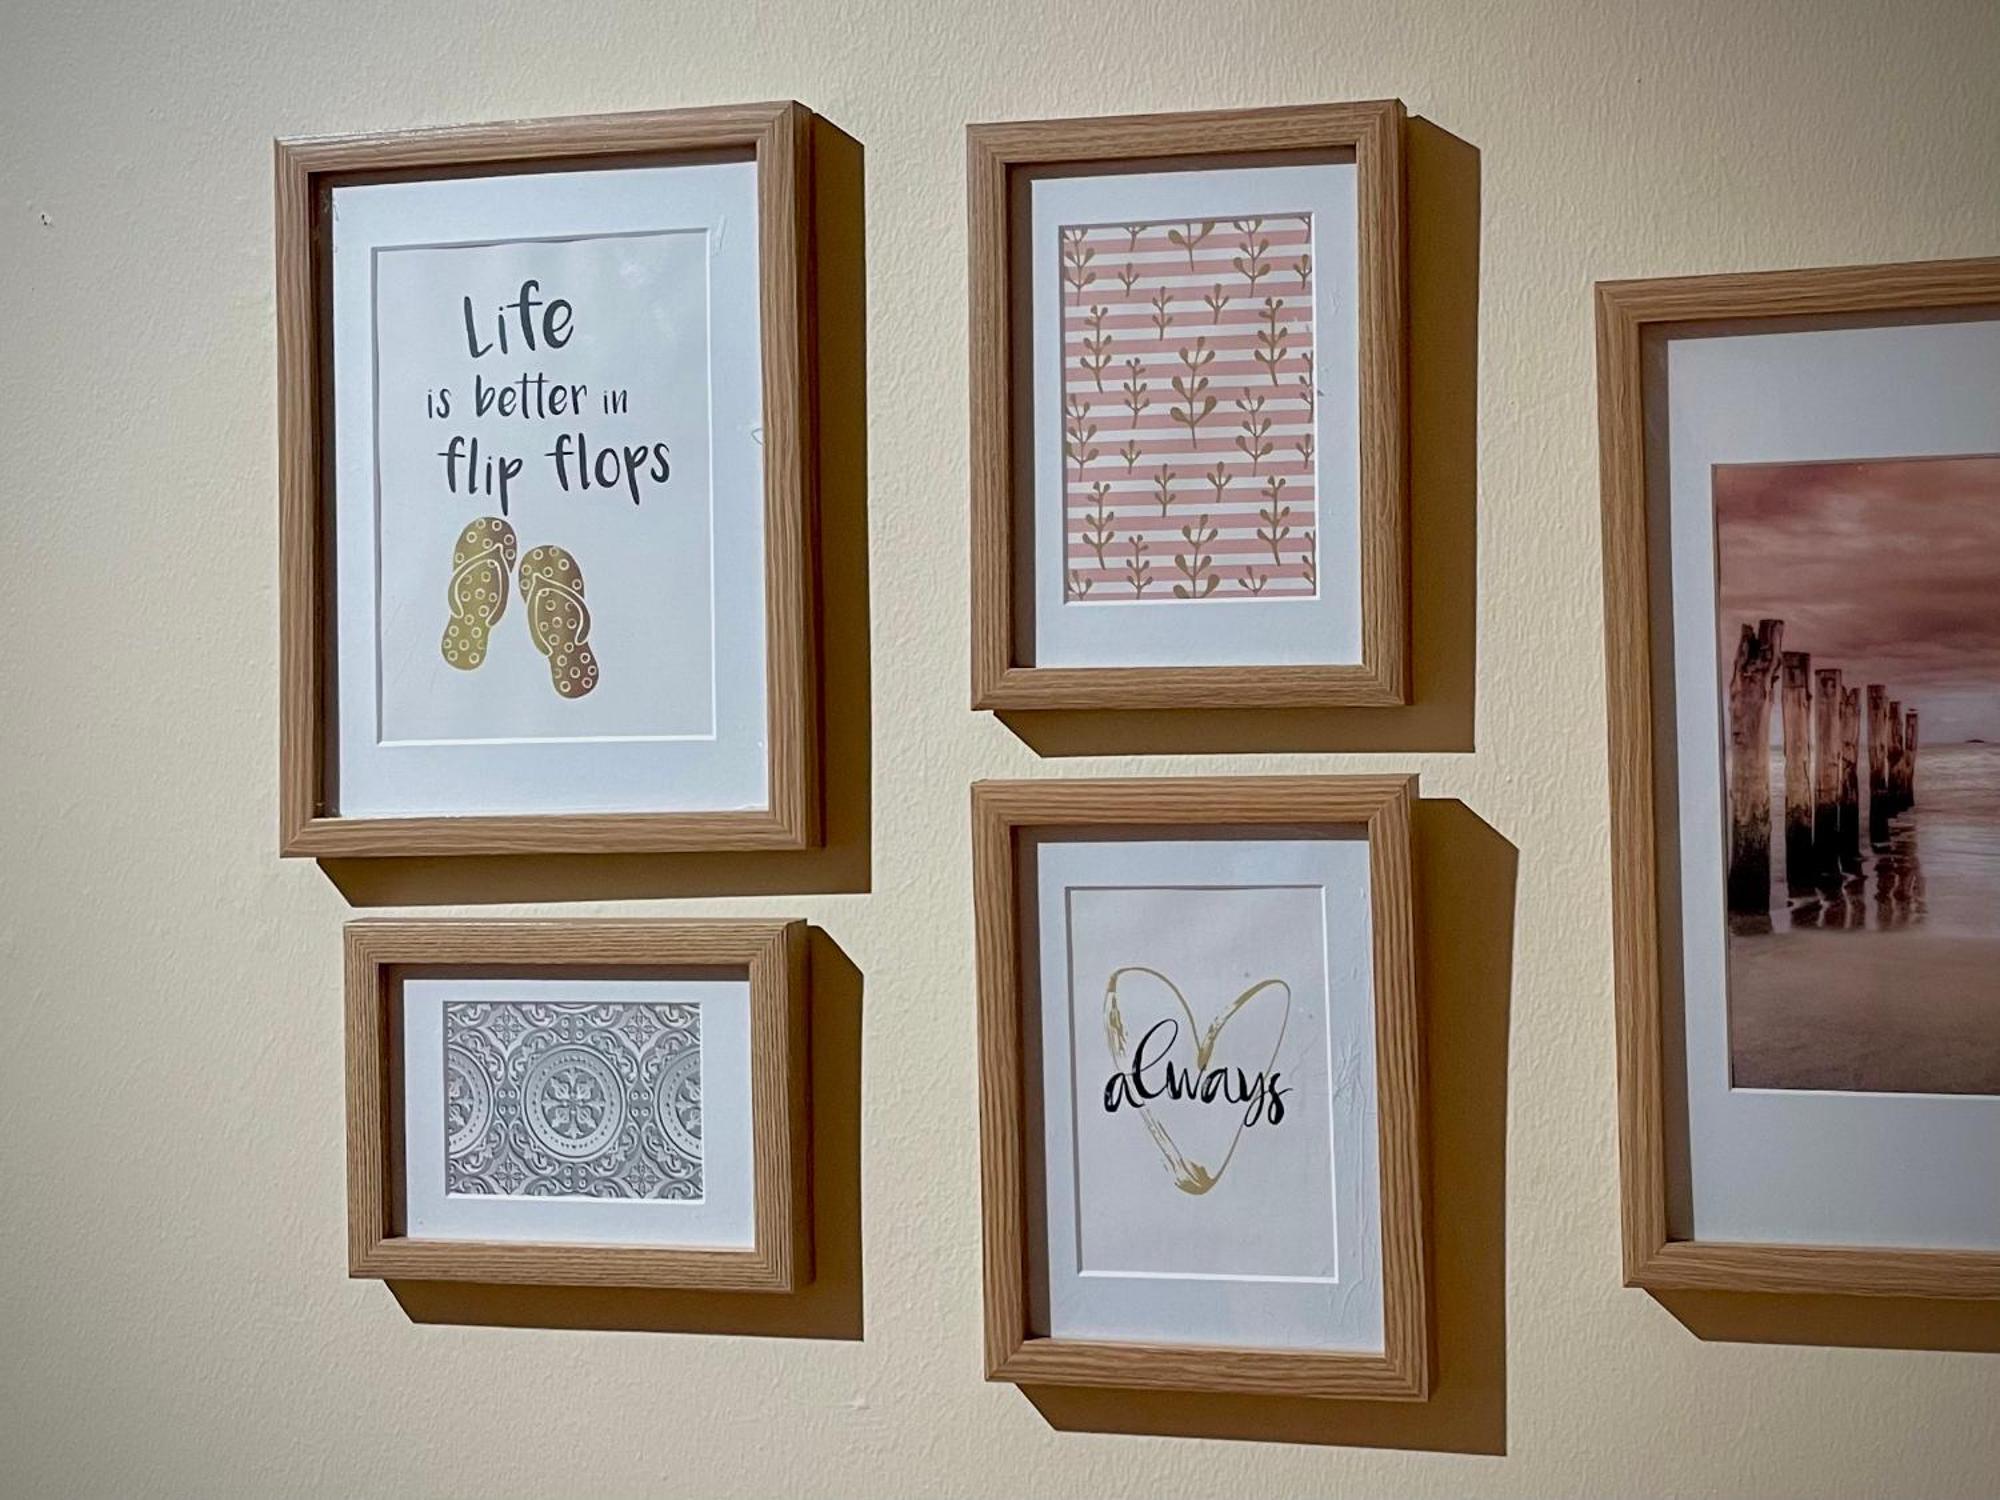 Life
is better in
flip flops
always